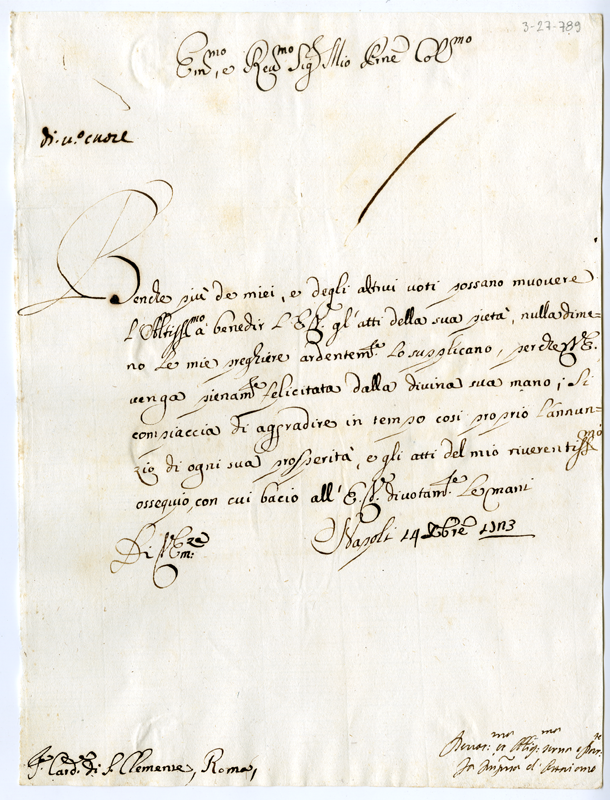 3-27-789
Em.mo, e Reu.mo Sig.r Mio Pne Col.mo
di. u.o cuore
Benche più de miei, e degli altrui voti possano muouere
l'Altiss.mo à benedir L'E.V. gl'atti della sua pietà, nulladime=
no le mie preghiere ardentem.te Lo supplicano, perche V.E.
uenga pienam.te felicitata dalla diuina sua mano; Si
compiaccia di aggradire in tempo così proprio l'annun=
zio di ogni sua prosperità, e gli atti del mio riuerentiss.mo
ossequio, con cui bacio all'E.V. diuotam.te Le mani
Napoli 14 Xbre
Di V. Em.za
S.r Card. di S. Clemente, Roma,